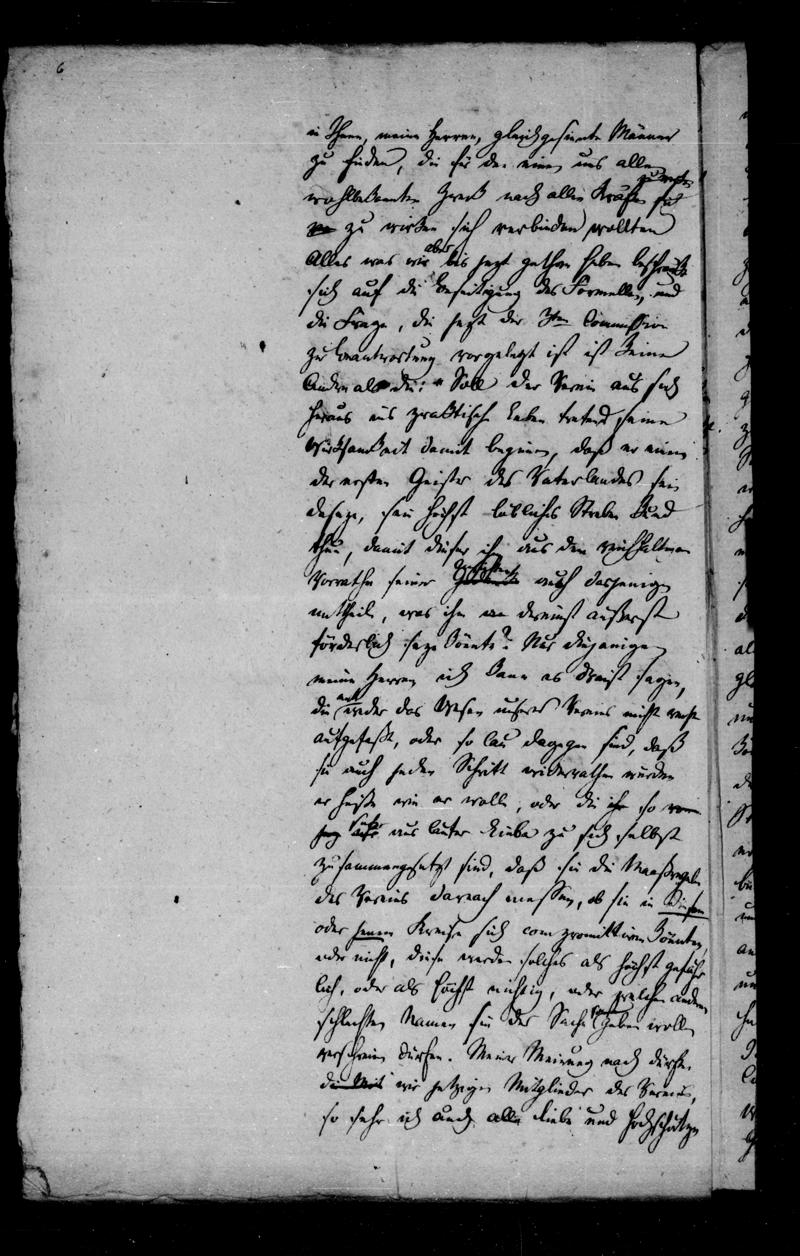 6
in Ihnen, meine Herren, gleichgesinnte Männer
zu finden, die für den einen uns allen
wohlbekannten Zweck nach allen Kräften
zu wirken sich verbinden wollten
Alles was wir aber bis jezt gethan haben beschränkt
sich auf die Beseitigung des Formellen, und
die Frage, die jezt der 3ten Commission
zur Beantwortung vorgelegt ist ist keine
Andre als die: "Soll der Verein aus sich
heraus ins praktische Leben tretend seine
Wirksamkeit damit beginnen, daß er einem
der ersten Geister des Vaterlandes sein
daseyn, sein höchst löbliches Streben kund
thue, damit dieser ihm aus dem reichhaltigen
Vorrathe seiner auch dasjenige
mittheile, was ihm dereinst äußerst
förderlich seyn könnte? Nur diejenigen
meine Herren ich kann es dreist sagen,
die entweder das Wesen unseres Vereins nicht recht
aufgefaßt, oder so lau dagegen sind, daß
sie auch jeden Schritt widerrathen würden
er heiße wie er wolle, oder die so
aus lauter Liebe zu sich selbst
zusammengesetzt sind, daß sie die Maaßregeln
des Vereins darnach messen, ob sie in diesem
oder jenem Kreise sich compromittiren könnten,
oder nicht, diese werden solches als höchst gefähr
lich, oder als höchst nichtig, oder welchen andern
schlechten Namen sie der Sache geben wollen
verschreien dürfen. Meiner Meinung nach dürfen
wir jetzigen Mitglieder des Vereins,
so sehr ich auch alle liebe und hochschätze